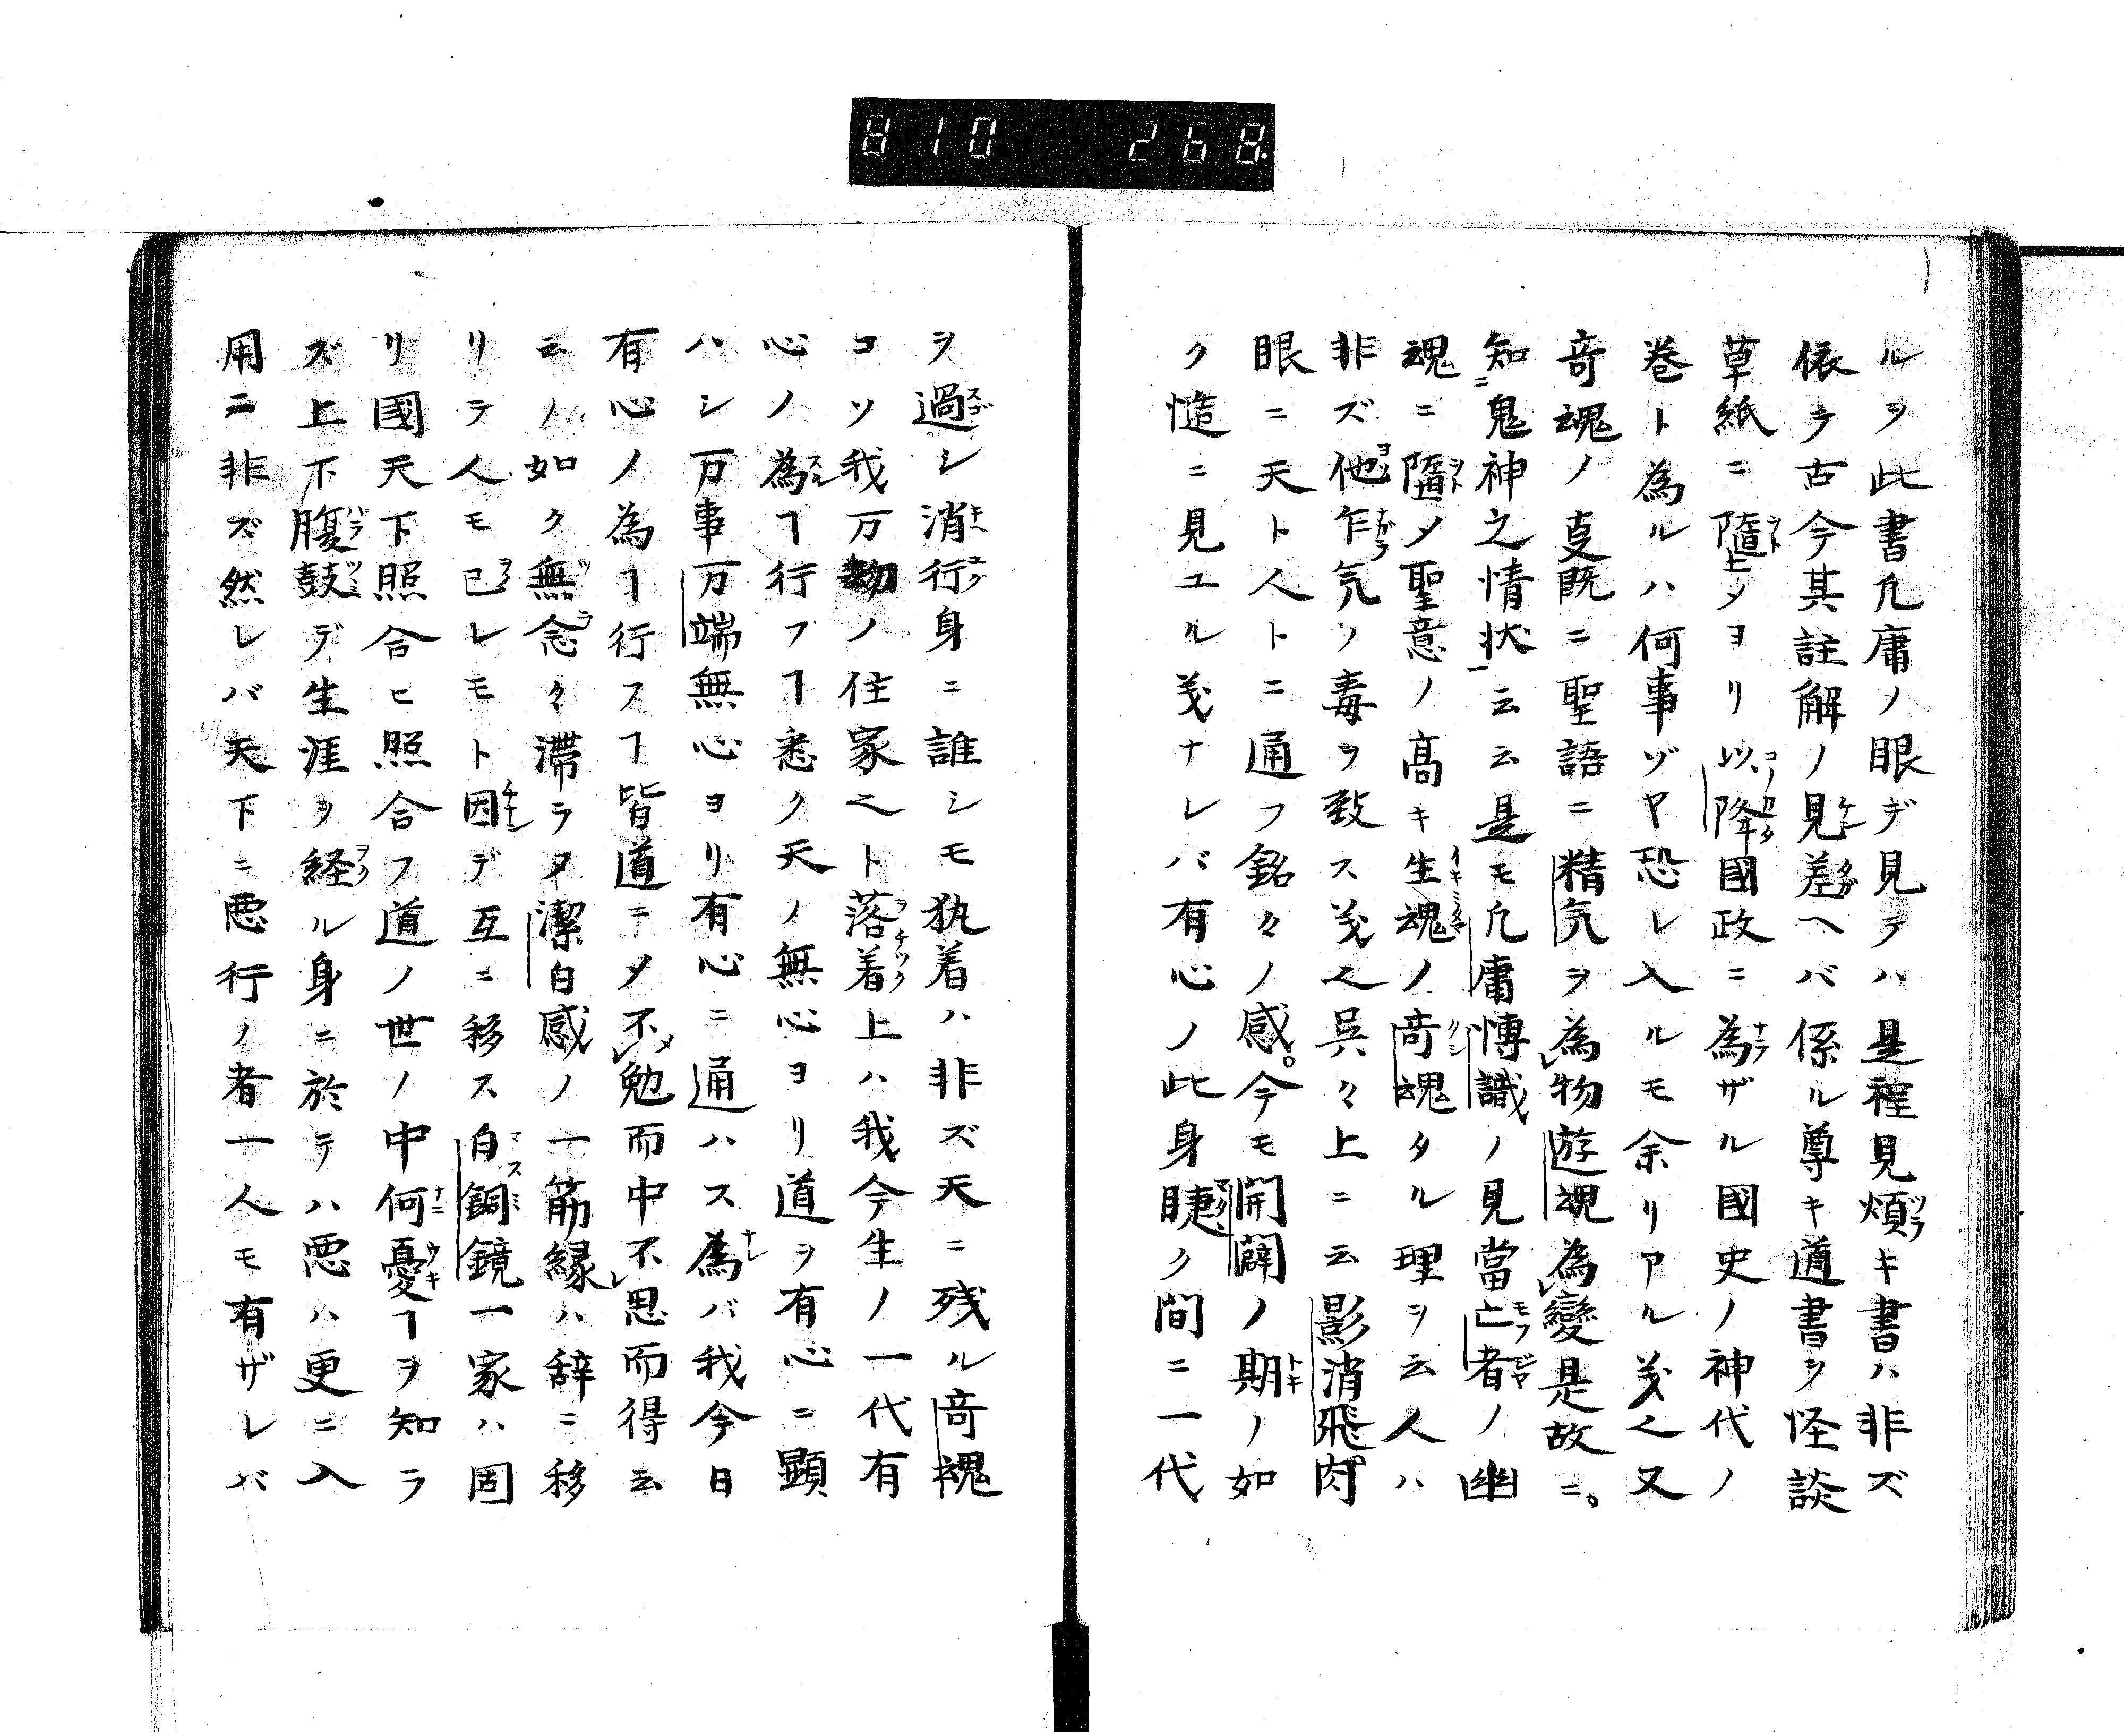 810 268
ルヲ此書凡庸ノ眼デ見テハ是程見煩キ書ハ非ズ
依テ古今其註解ノ見差ヘバ係ル尊キ道書ヲ怪談
草紙ニ墮シタヨリ以降國政ニ為ザル國史ノ神代ノ
巻ト為ルハ何事ゾヤ恐レ入ルモ余リアル義也又
奇魂ノ㕝既ニ聖語ニ精気ヲ為物遊魂為變是故ニ。
知鬼神之情状云云是モ凡庸博識ノ見當亡者ノ幽
魂ニ墮メ聖意ノ高キ生魂ノ奇魂タル理ヲ云人ハ
非ズ他乍気ノ毒ヲ致ス義也呉々上ニ云影消飛肉
眼ニ天ト人トニ通フ銘々ノ感。今モ開闢ノ期ノ如
ク慥ニ見ユル義ナレバ有心ノ此身瞳ク間ニ一代
ヲ過シ消行身ニ誰シモ執着ハ非ズ天ニ残ル奇魂
コソ我万物ノ住家也ト落着上ハ我今生ノ一代有
心ノ為ヿ行フヿ悉ク天ノ無心ヨリ道ヲ有心ニ顕
ハシ万事万端無心ヨリ有心ニ通ハス為バ我今日
有心ノ為ヿ行スヿ皆道ニメ不勉而中不思而得云
云ノ如ク無念々滞ラヌ潔白感ノ一筋縁ハ辞ニ移
リテ人モ已レモト因デ互ニ移ス白銅鏡一家ハ固
リ國天下照合ヒ照合フ道ノ世ノ中何憂ヿヲ知ラ
ズ上下腹鼓デ生涯ヲ経ル身ニ於テハ悪ハ更ニ入
用ニ非ズ然レバ天下ニ悪行ノ者一人モ有ザレバ